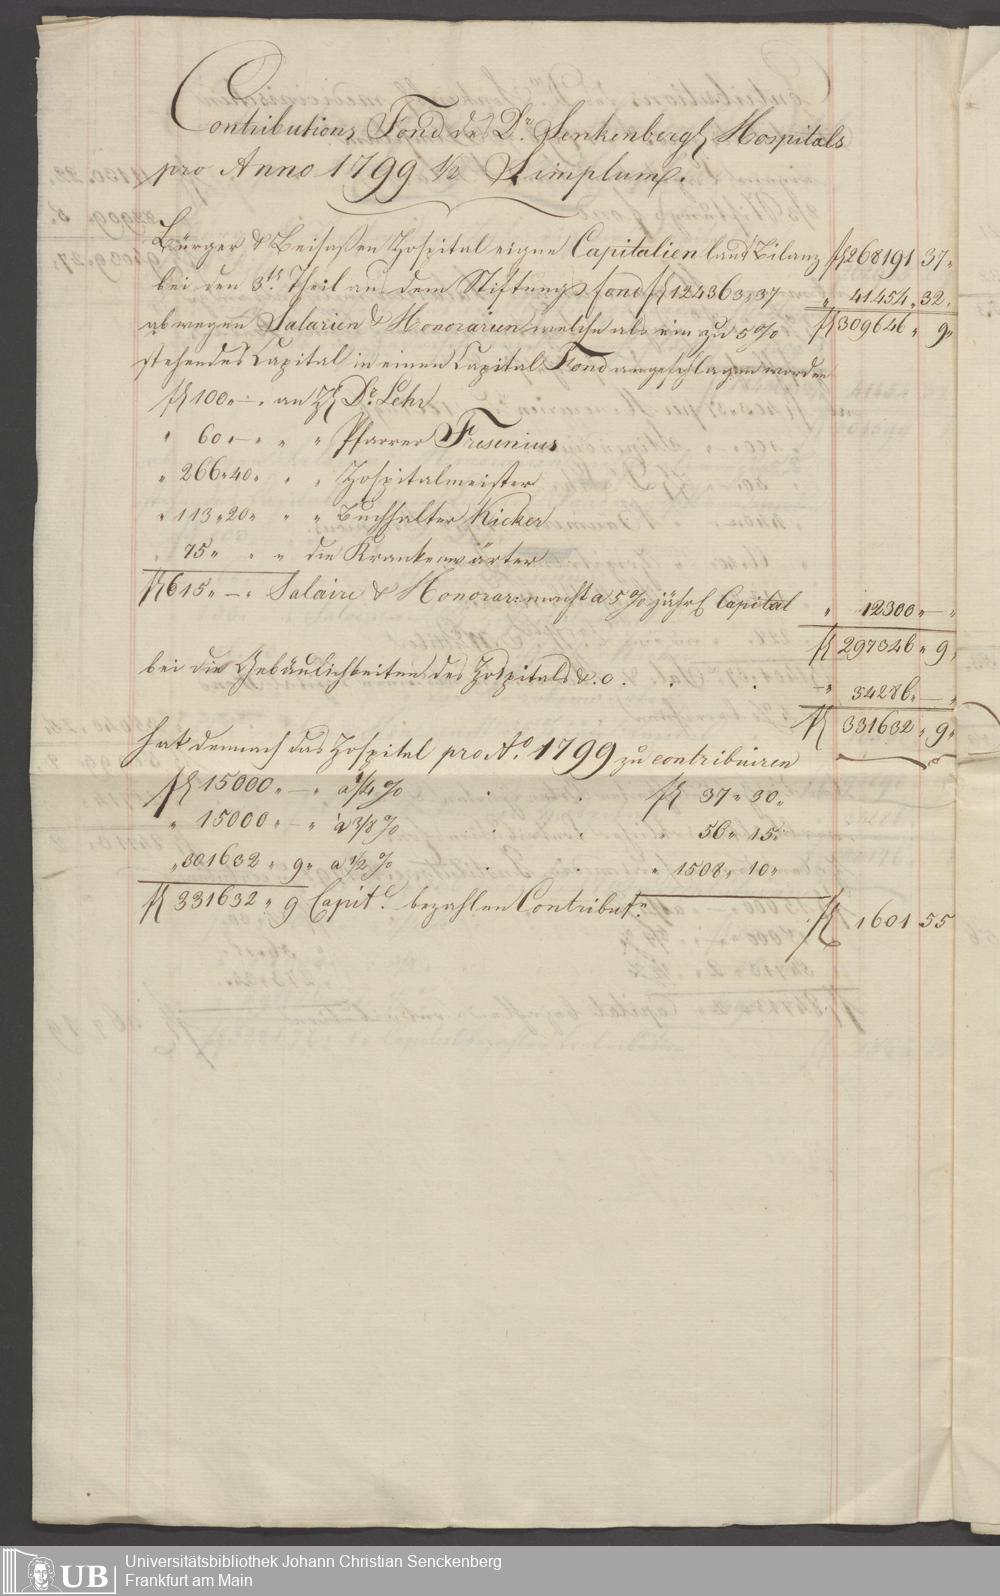 Contributions Fond des Dr. Senkenbergs Hospitals
pro Anno 1799 1/2 Simplum.
Bürger & Beisaßen Hospital eigne Capitalien laut Bilanz f 268191 37"
bei den 3ts. Theil aus dem Stiftungs fond f 124363,, 37 " 41454 " 32"
ab wegen Salarien & Honorarien welche als ein zu 5 % f 309646 " 9"
stehendes Capital in einen Capital Fond angeschlagen worden
f 100 " — " an Dr. Lehr
" 60 " — " " " Pfarrer Fresenius
" 266 " 40 " " " Hospitalmeister
" 113 " 20 " " " Buchhalter Kicker
" 75 " " " die Krankenwärter
f 615 " — " Salaire & Honorar: macht a 5 % jährl Capital " 12300 " — "
f 297346 " 9"
bei die Gebäulichkeiten des Hospitals &. c. . . . " 34286 " — "
f 331632 " 9"
hat demnach das Hospital pro Ao. 1799 zu contribuiren
f 15000 " — " a 1/4 % . . f 37 " 30 "
" 15000 " — " a 3/8 % . . " 56 " 15 "
" 301632 " 9 " a 1/2 % . . " 1508 " 10 "
f 331632 " 9 Capit. bezahlen Contribut. f 1601 55
UB Universitätsbibliothek Johann Christian Senckenberg
Frankfurt am Main